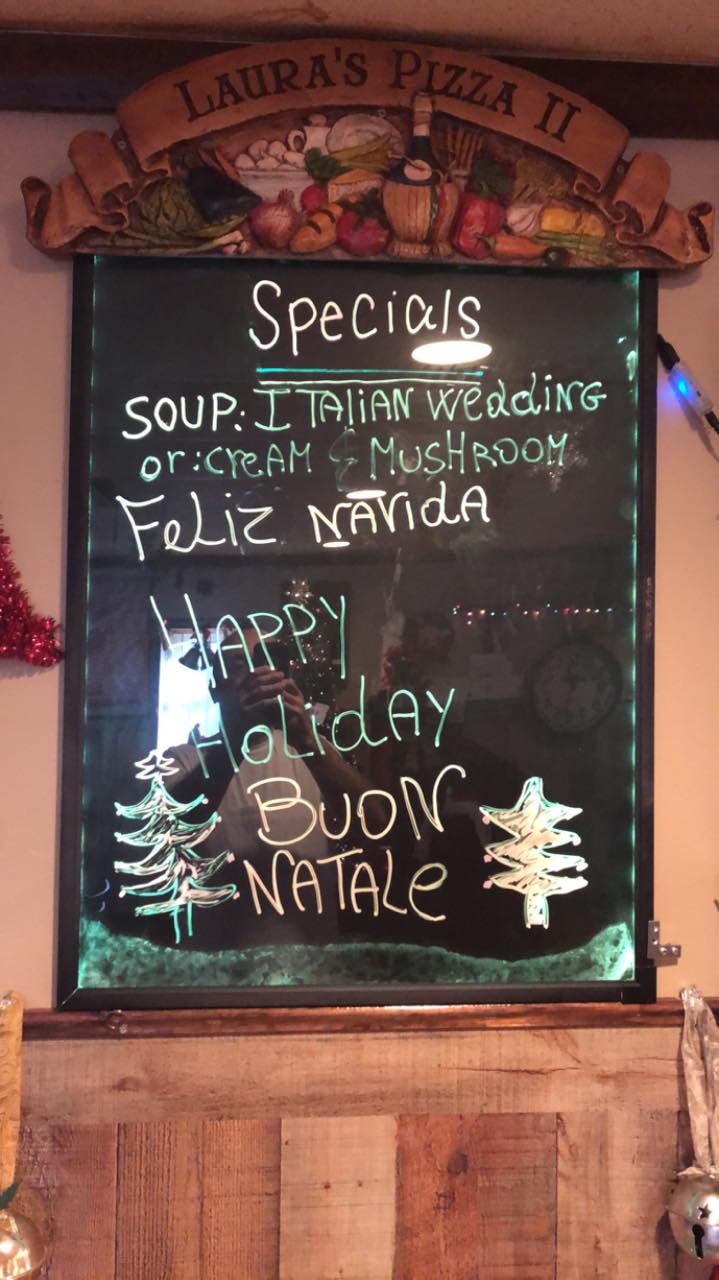 LAURA'S PIZZA II
Specials
SOUP: ITALIAN WeddiNG
or: creAM & MUSHROOM
FeLiz NAVidA
HAPPY
HoLidAY
BUON
NATALe